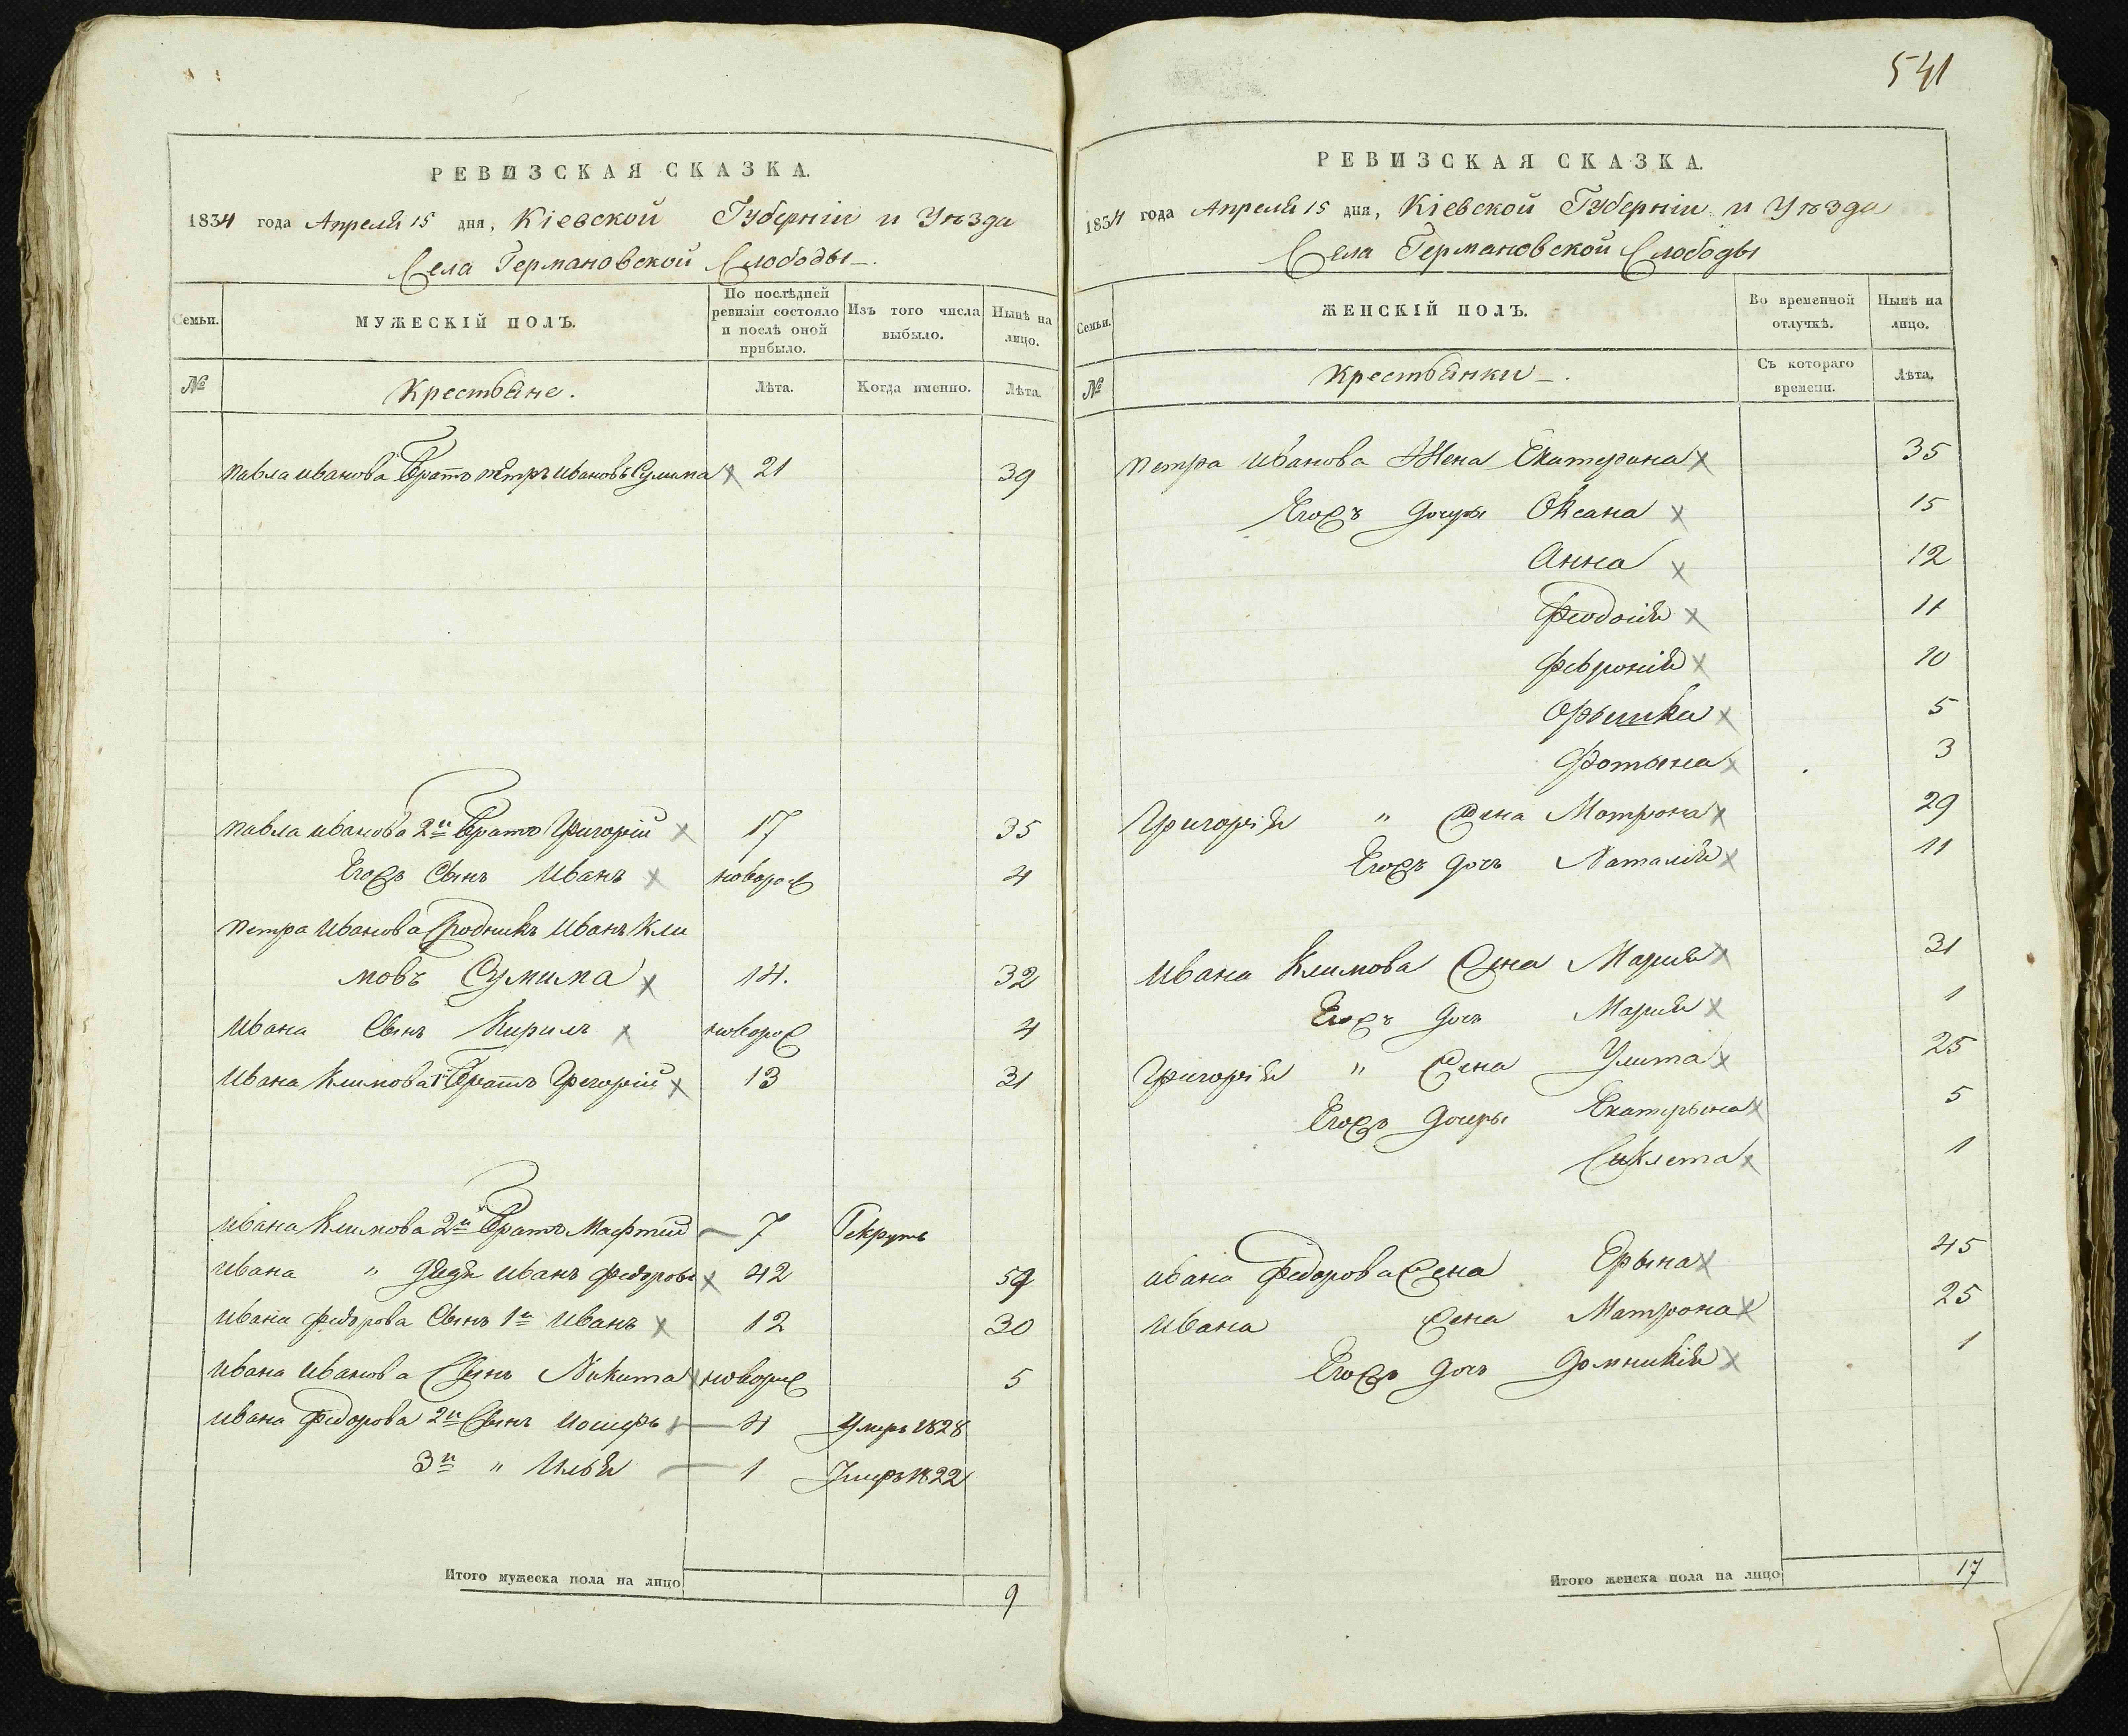 РЕВИЗСКАЯ СКАЗКА.
1834 года Апреля 15 дня, Кіевской Губерніи и Уѣзда
Села Германовской Слободы
Семьи.
МУЖЕСКІЙ ПОЛЪ.
По послѣдней ревизіи состояло и послѣ оной прибыло.
Изъ того числа выбыло.
Нынѣ на лицо.
№
Крестьяне.
Лѣта.
Когда именно.
Лѣта.
Павла Иванова Братъ Петръ Ивановъ Сулима 21 39
Павла Иванова 2й Братъ Григорій 17 35
Его Сынъ Иванъ новорож 4
Петра Иванова Иванъ Кли
мовъ Сулима 14. 32
Ивана Сынъ Кирилъ новорож 4
Ивана Климова 1й Братъ Григорій 13 31
Ивана Климова 2й Братъ Мафтей 7 Рекрутъ
Ивана " Дядя Иванъ Федоровъ 42 59
Ивана Федорова Сынъ 1й Иванъ 12 30
Ивана Иванова Сынъ Никита новорож 5
Ивана Федорова 2й Сынъ Иосифъ 4 Умеръ 1828
3й " Илья 1 Умеръ 1822
Итого мужеска пола на лицо 9
541
РЕВИЗСКАЯ СКАЗКА.
1834 года Апреля 15 дня, Кіевской Губерніи и Уѣзда
Села Германовской Слободы
Семьи.
ЖЕНСКІЙ ПОЛЪ.
Во временной отлучкѣ.
Нынѣ на лицо.
№
Крестьянки
Съ котораго времени.
Лѣта.
Петра Иванова Жена Екатерина 35
Егожъ дочери Оксана 15
Анна 12
Феодосія 11
Февронія 10
Орышка 5
Фотына 3
Григорія " Жена Мотрона 29
Егожъ дочь Наталія 11
Ивана Климова Жена Марія 31
Егожъ дочь Марія 1
Григорія " Жена Улита 25
Егожъ дочеры Екатерына 5
Сиклета 1
Ивана Федорова Жена Ерына 45
Ивана Жена Матрона 25
Егожъ дочь Домникія 1
Итого женска пола на лицо 17